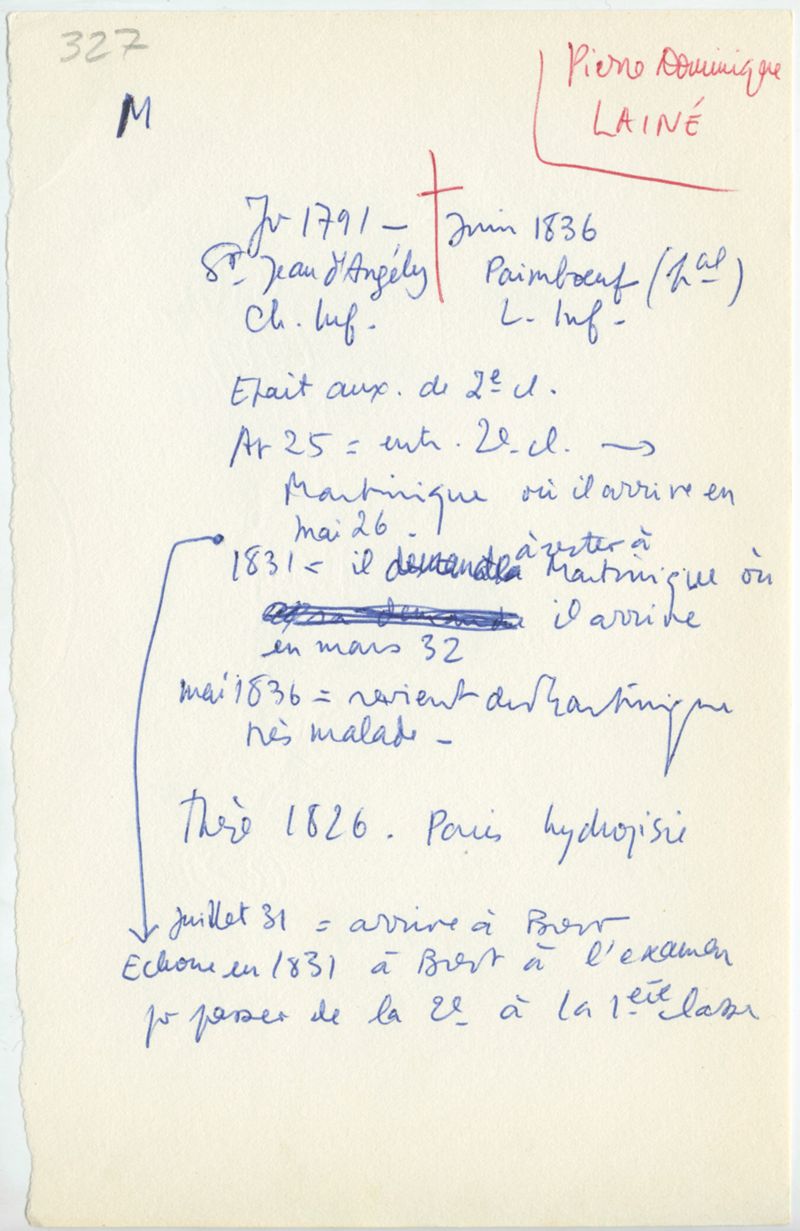 327
M
Pierre Dominique
LAINÉ
Jv 1791 – Juin 1836
St. Jean d'Angély Paimbœuf (hal)
Ch. Inf. L. Inf –
Etait aux. de 2e cl.
Av 25 = entr. 2e cl. →
Martinique où il arrive en
mai 26.
1831 = il demande à rester à Martinique où
il arrive
en mars 32
mai 1836 = revient de Martinique
très malade –
Thèse 1826. Paris hydropisie
Juillet 31 = arrive à Brest
Echoue en 1831 à Brest à l'examen
pr passer de la 2e à la 1ère classe